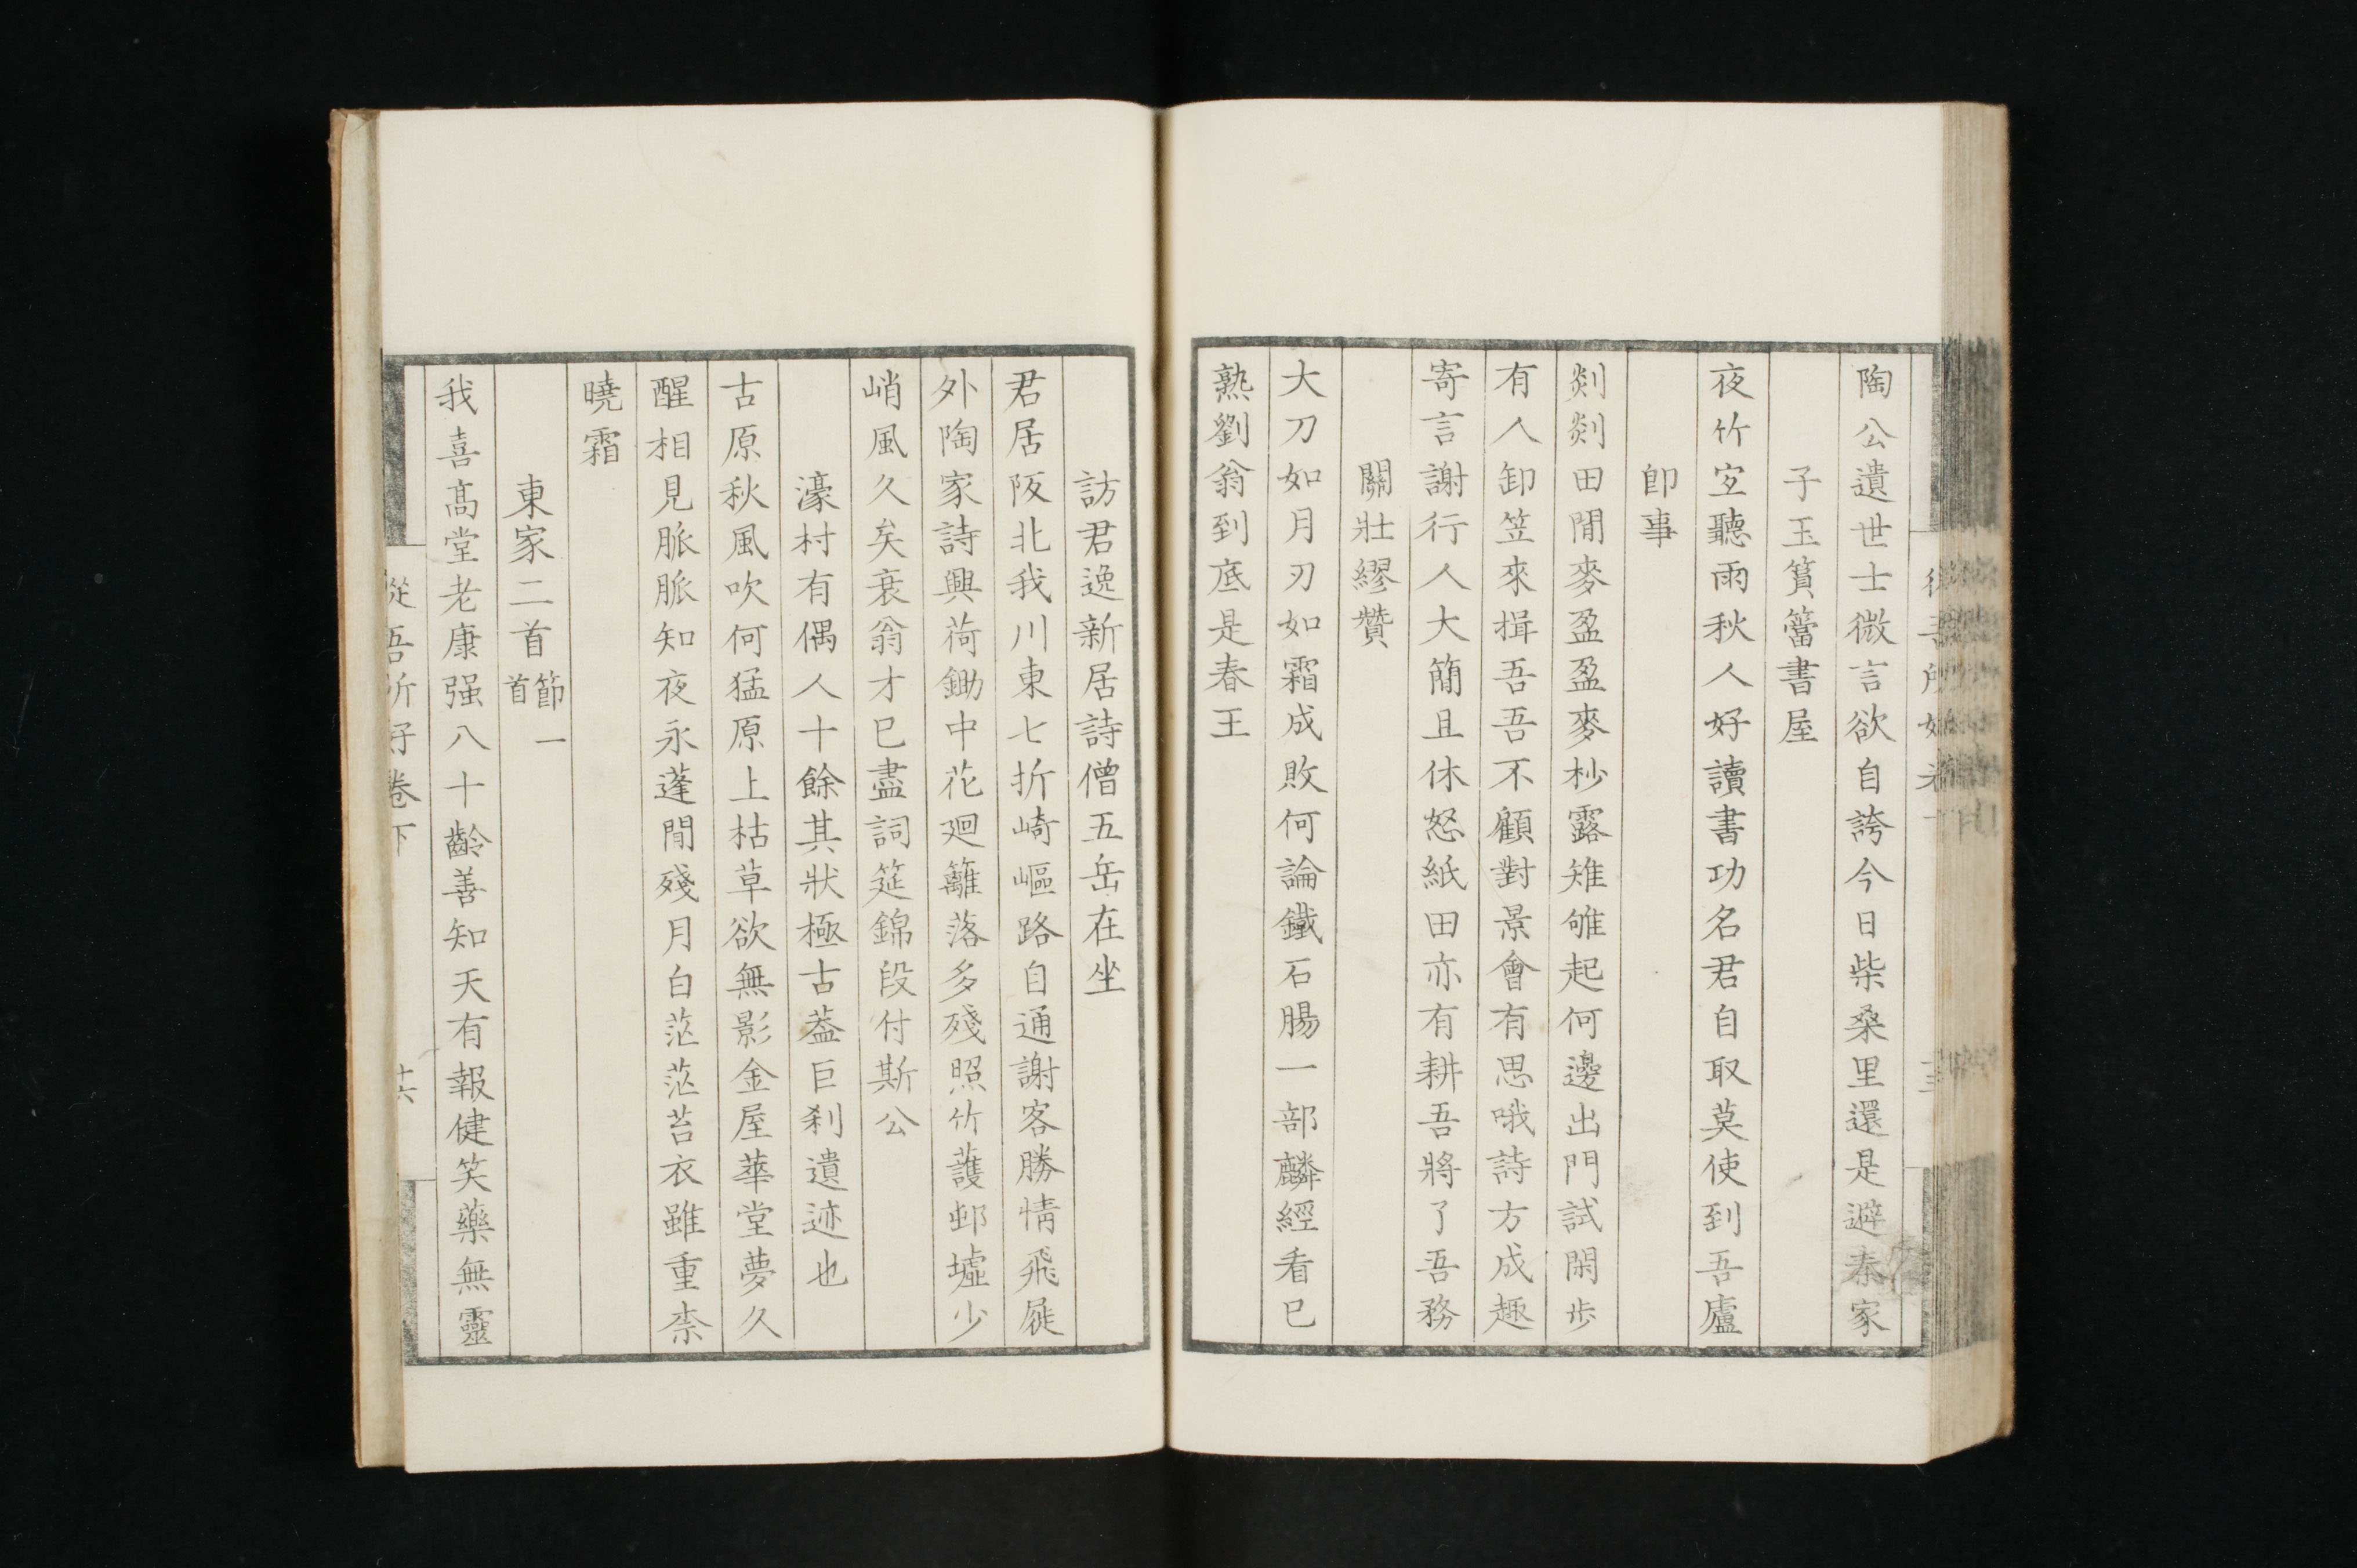 陶公遺世士微言欲自誇今日柴桑里還是避秦家
子玉篔簹書屋
夜竹宜聽雨秋人好讀書功名君自取莫使到吾廬
即事
剡剡田間麥盈盈麥杪露雉雊起何邊出門試閑步
有人卸笠來揖吾吾不顧對景會有思哦詩方成趣
寄言謝行人大簡且休怒紙田亦有耕吾將了吾務
關壯繆贊
大刀如月刃如霜成敗何論鐵石腸一部麟經看已
熟劉翁到底是春王
訪君逸新居詩僧五岳在坐
君居阪北我川東七折崎嶇路自通謝客勝情飛屐
外陶家詩興荷鋤中花廻籬落多殘照竹護邨墟少
峭風久矣衰翁才已盡詞筵錦段付斯公
濠村有偶人十餘其狀極古葢巨刹遺迹也
古原秋風吹何猛原上枯草欲無影金屋華堂夢久
醒相見脈脈知夜永蓬間殘月白茫茫苔衣雖重柰
曉霜
東家二首節一首
我喜高堂老康强八十齡善知天有報健笑藥無靈
從吾所好卷下
十六